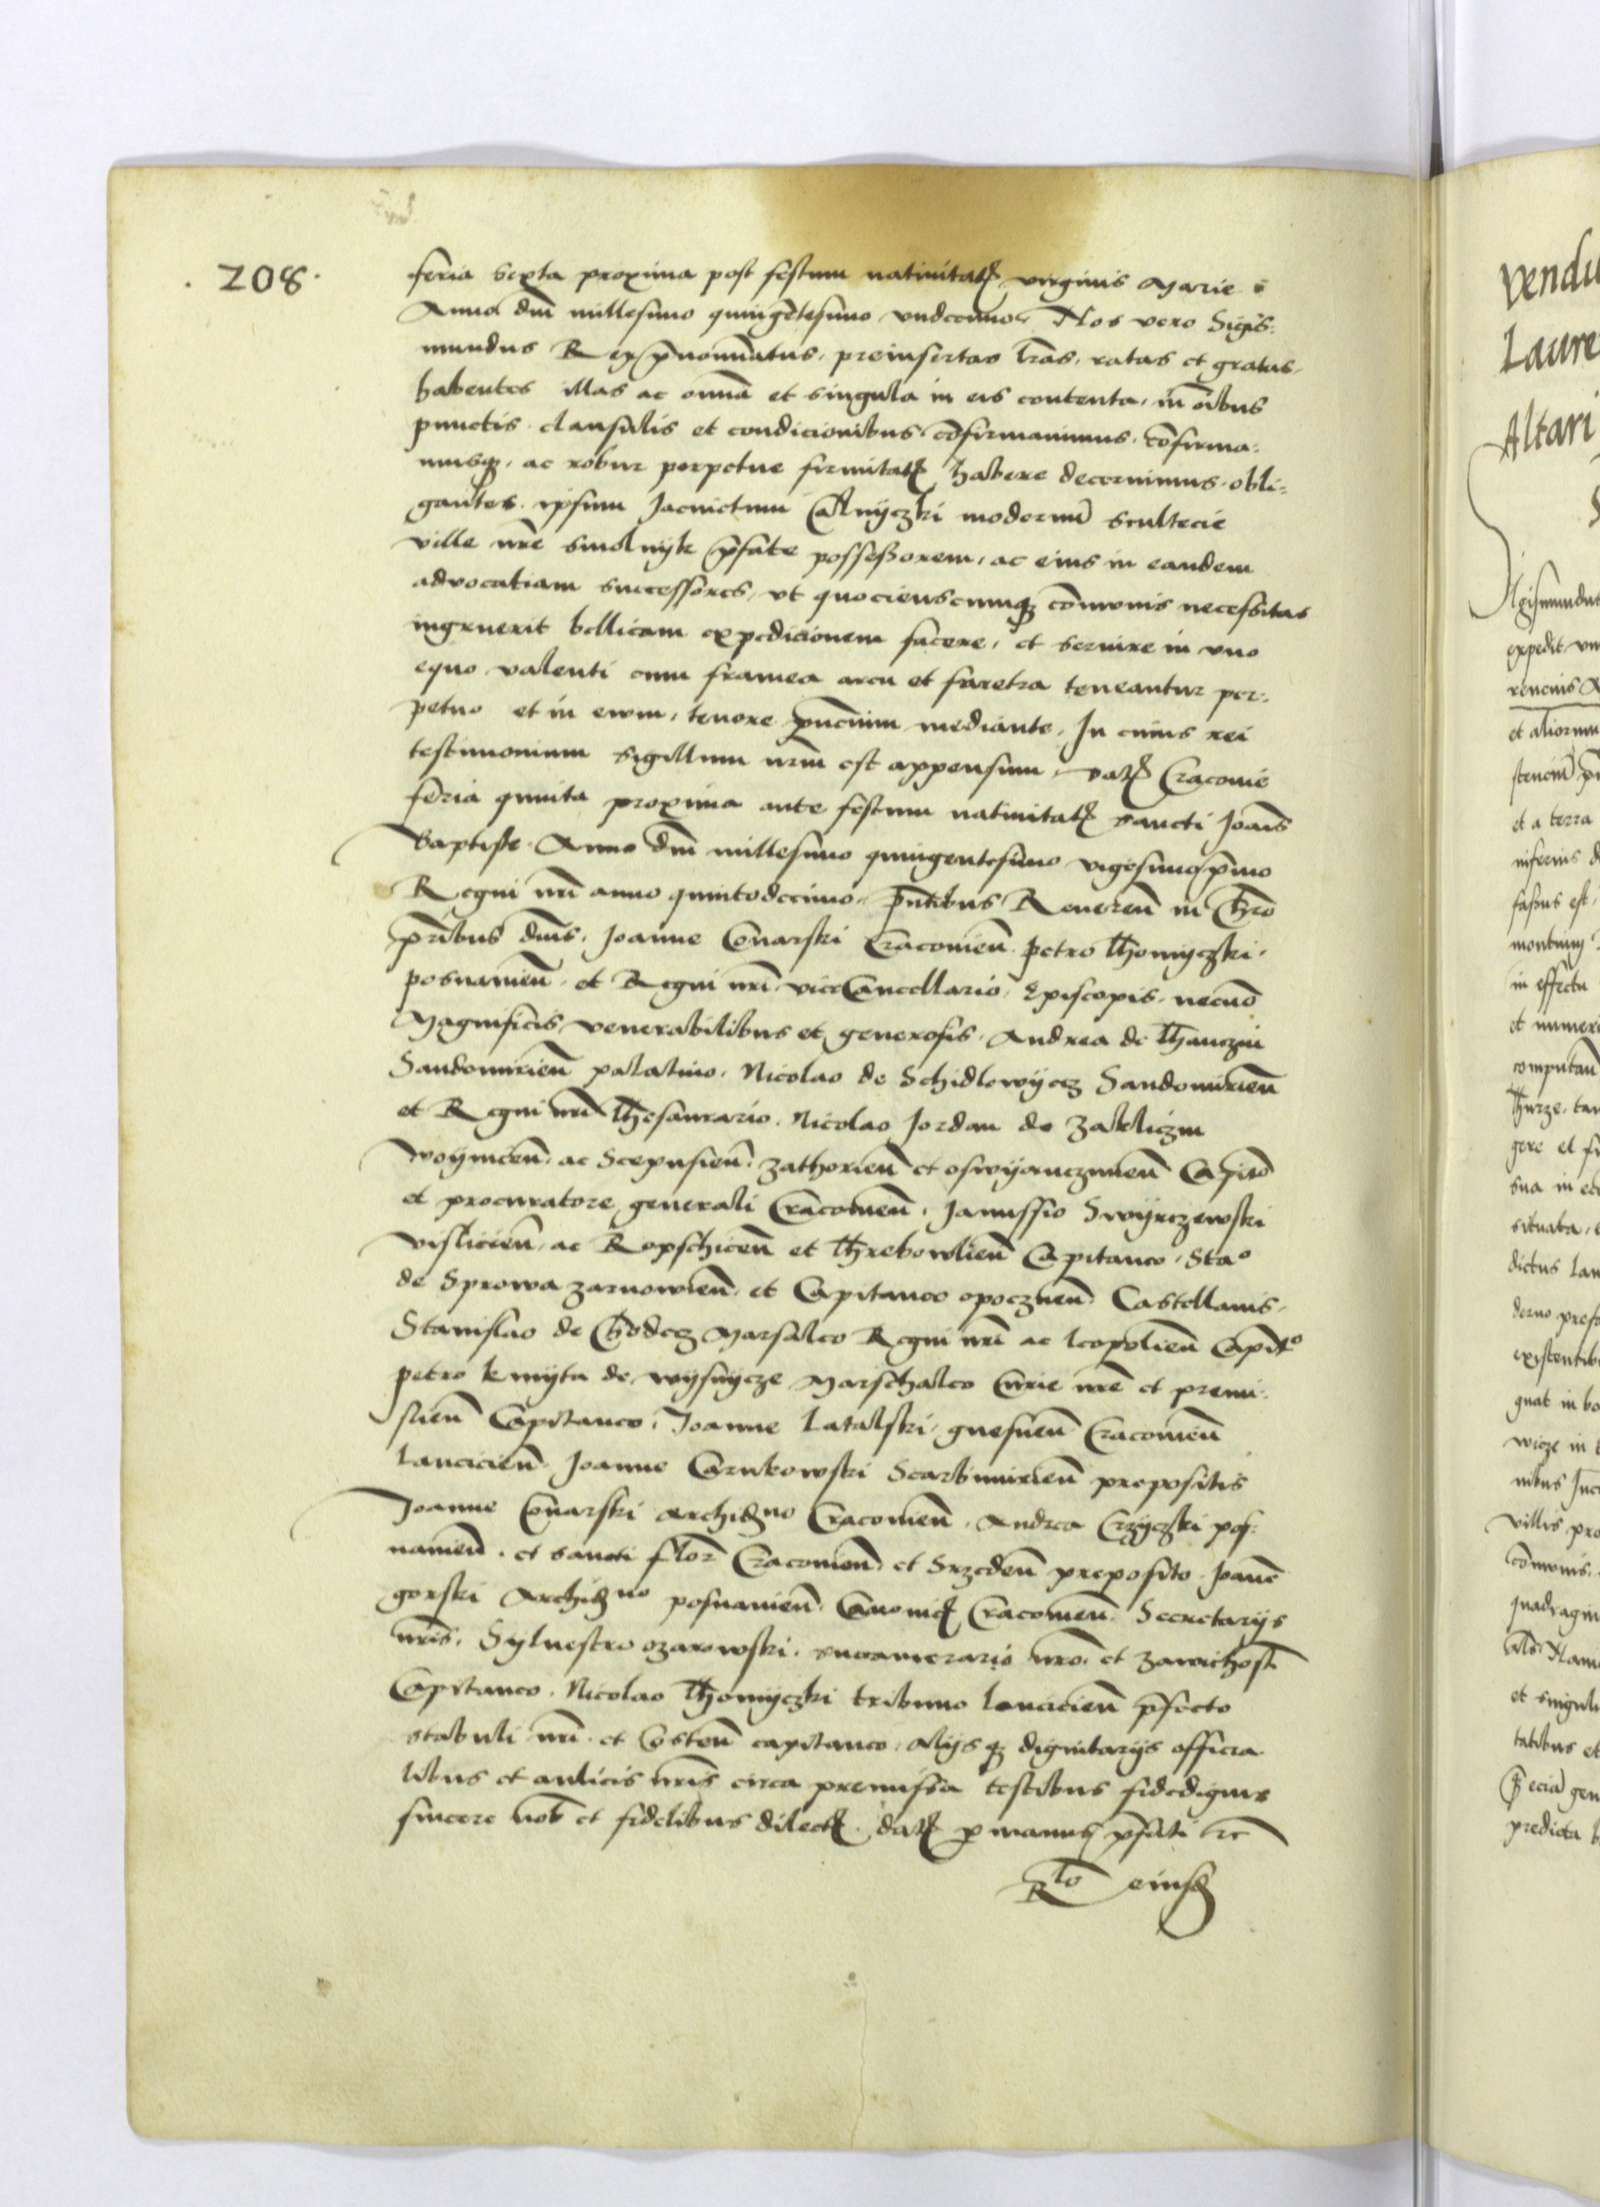 208
feria sexta proxima post festum natiuitatꝭ virginis Marie
Anno dnī millesimo quingētesimo vndecimo. Nos vero Sigis:
mundus Rex p̄nominatus, preinsertas l̄ras, ratas et gratas
habentes illas ac omnia et singula in eis contenta, in oībus
punctis clausulis et condicionibus cōfirmauimus, cōfirma:
musqꝫ, ac robur perpetue firmitatꝭ habere decernimus. obli:
gantes ipsum Jacinctum modernū scultecie
ville nr̄e smolnyk p̄fate possessorem, ac eius in eandem
advocatiam successores, vt quocienscumqꝫ cōmunis necessitas
ingruerit bellicam expedicionem facere, et seruire in vno
equo valenti cum framea arcu et faretra teneantur per:
petuo et in ewm, tenore p̄ncium mediante. In cuius rei
testimonium sigillum nr̄m est appensum. Datꝭ Cracouie
feria quinta proxima ante festum natiuitatꝭ sancti Joānis
Baptiste. Anno dnī millesimo quingentesimo vigesimop̄mo
Regni nr̄i anno quintodecimo. p̄ntibus Reuereñ in Chr̄o
pr̄ibus dn̄is, Joanne Conarski Cracouieñ petro Thomyczki
posnanieñ et Regni nr̄i viceCancellario, Episcopis. necnō
Magnificis, venerabilibus et generosis. Andrea de Thanczin
Sandomirieñ palatino, Nicolao de Schidlowycz Sandomirieñ
et Regni nr̄i Thesaurario. Nicolao Jordan de Zakliczin
woyniceñ, ac Scepusieñ, zathorieñ et osswyanczimeñ Capitō
et procuratore generali Cracouieñ, Janussio Swyrczewski
visliciēn, ac Ropschiceñ et Threbowlieñ Capitaneo, Stao
de Sprowa zarnowieñ, et Capitaneo opoczneñ Castellanis,
Stanislao de Chodecz Marsalco Regni nr̄i ac leopolieñ Capit̄o
petro kmyta de wysnycze Marschalco Curie nr̄e et premi:
slieñ Capitaneo, Joanne Latalski, gnesneñ Cracouieñ
Lancicieñ Joanne Carnkowski Scarbimirieñ prepositis
Joanne Conarski Archidno Cracouieñ, Andrea Crzyczki pos:
nanieñ. et sancti flor̄ Cracouieñ et Srzedeñ preposito Joanē
gorski Archidno posnanieñ, Canonicꝭ Cracouieñ Secretarijs
nr̄is. Syluestro ozarowski, succamerario nr̄o, et zawichosteñ
Capitaneo. Nicolao Thomyczki tribuno lancicieñ p̄fecto
stabuli nr̄i et Costeñ capitaneo, alijsqꝫ dignitarijs officia
libus et aulicis nr̄is circa premissa testibus fidedignis
sincere nob̄ et fidelibus dilectꝭ. datꝭ p manus p̄fati etc̄
Rlo eiusdꝫ
vendi
Laure
Altari
Sigismundus
expedit vn
reneius
et aliorum
et a terra
inferius d
fassus est,
in effectu
et numeri
computan
Thurze, tan
gere et fr
sua in ec
situata, e
dictus lan
derno prefa
existentib
gnat in bo
wicze in
nibus Inc
villis pro
cōmunis,
quadragin
et singuli
tatibus et
predicta b